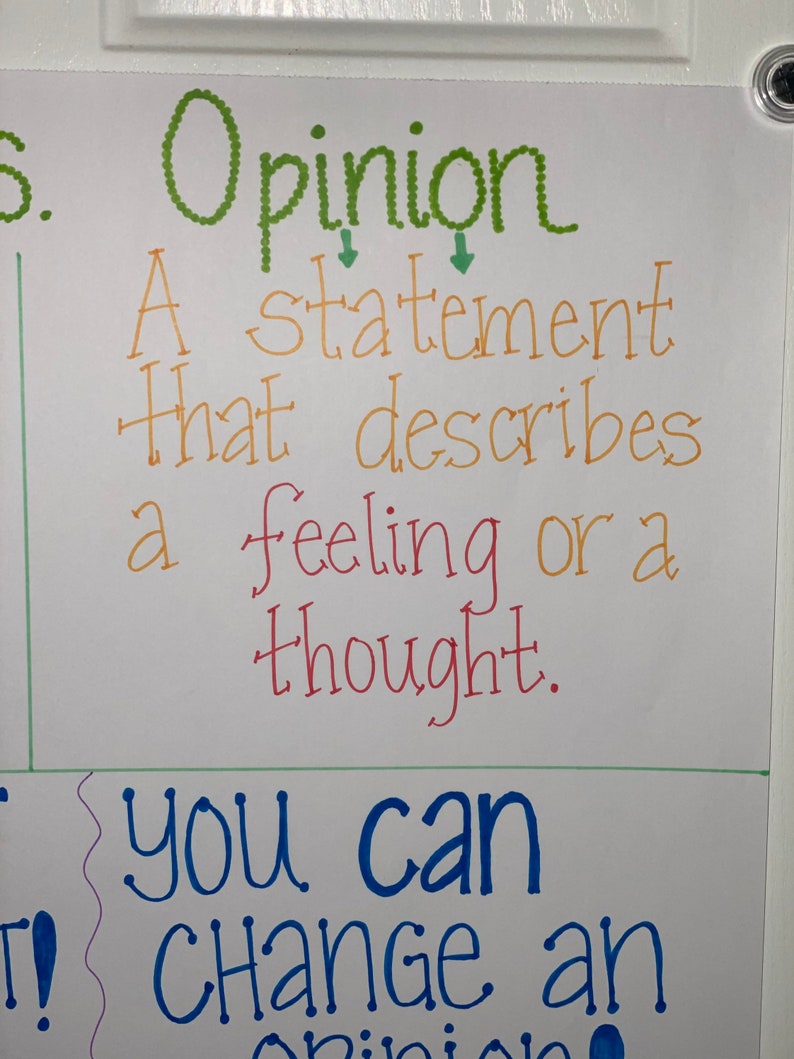 s. Opinion
A statement
that describes
a feeling or a
thought.
you can
T! CHanGe an
opinion!